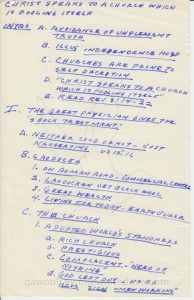 CHRIST SPEAKS TO A CHURCH WHICH
IS FOOLING ITSELF
INTRO A. AVOIDANCE OF UNPLEASANT
TRUTH
B. ILLUS INDEPENDENCE HOSP
C. CHURCHES ARE PRONE TO
SELF DECEPTION
D. "CHRIST SPEAKS TO A CHURCH
WHICH IS FOOLING ITSELF"
E. READ REV 3:14-22
I. THE GREAT PHYSICIAN GIVES THE
SHOCK TREATMENT.
A. NEITHER COLD OR HOT - MOST
NAUSEATING VS 15, 16
B. LAODICEA
1. ON ROMAN ROAD - COMMERCIAL CENTER
2. LAODICEAN VET BLACK WOOL
3. GREAT WEALTH
4. LIVING FOR TODAY - EARTHQUAKE
C. THE CHURCH
1. ADOPTED WORLD'S STANDARDS
a. RICH CHURCH
b. PRESTIGIOUS
c. COMPLACENT - "NEED OF
NOTHING"
d. GOD LEFT OUT - VS 20
ILLUS "MEN WORKING"